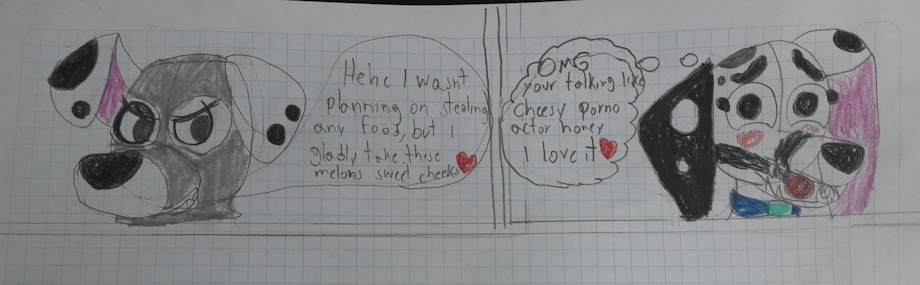 Hehe I wasn't
planning on stealing
any food, but I
gladly take these
melons sweet cheeks
OMG
your talking like
cheesy porno
actor honey
I love it